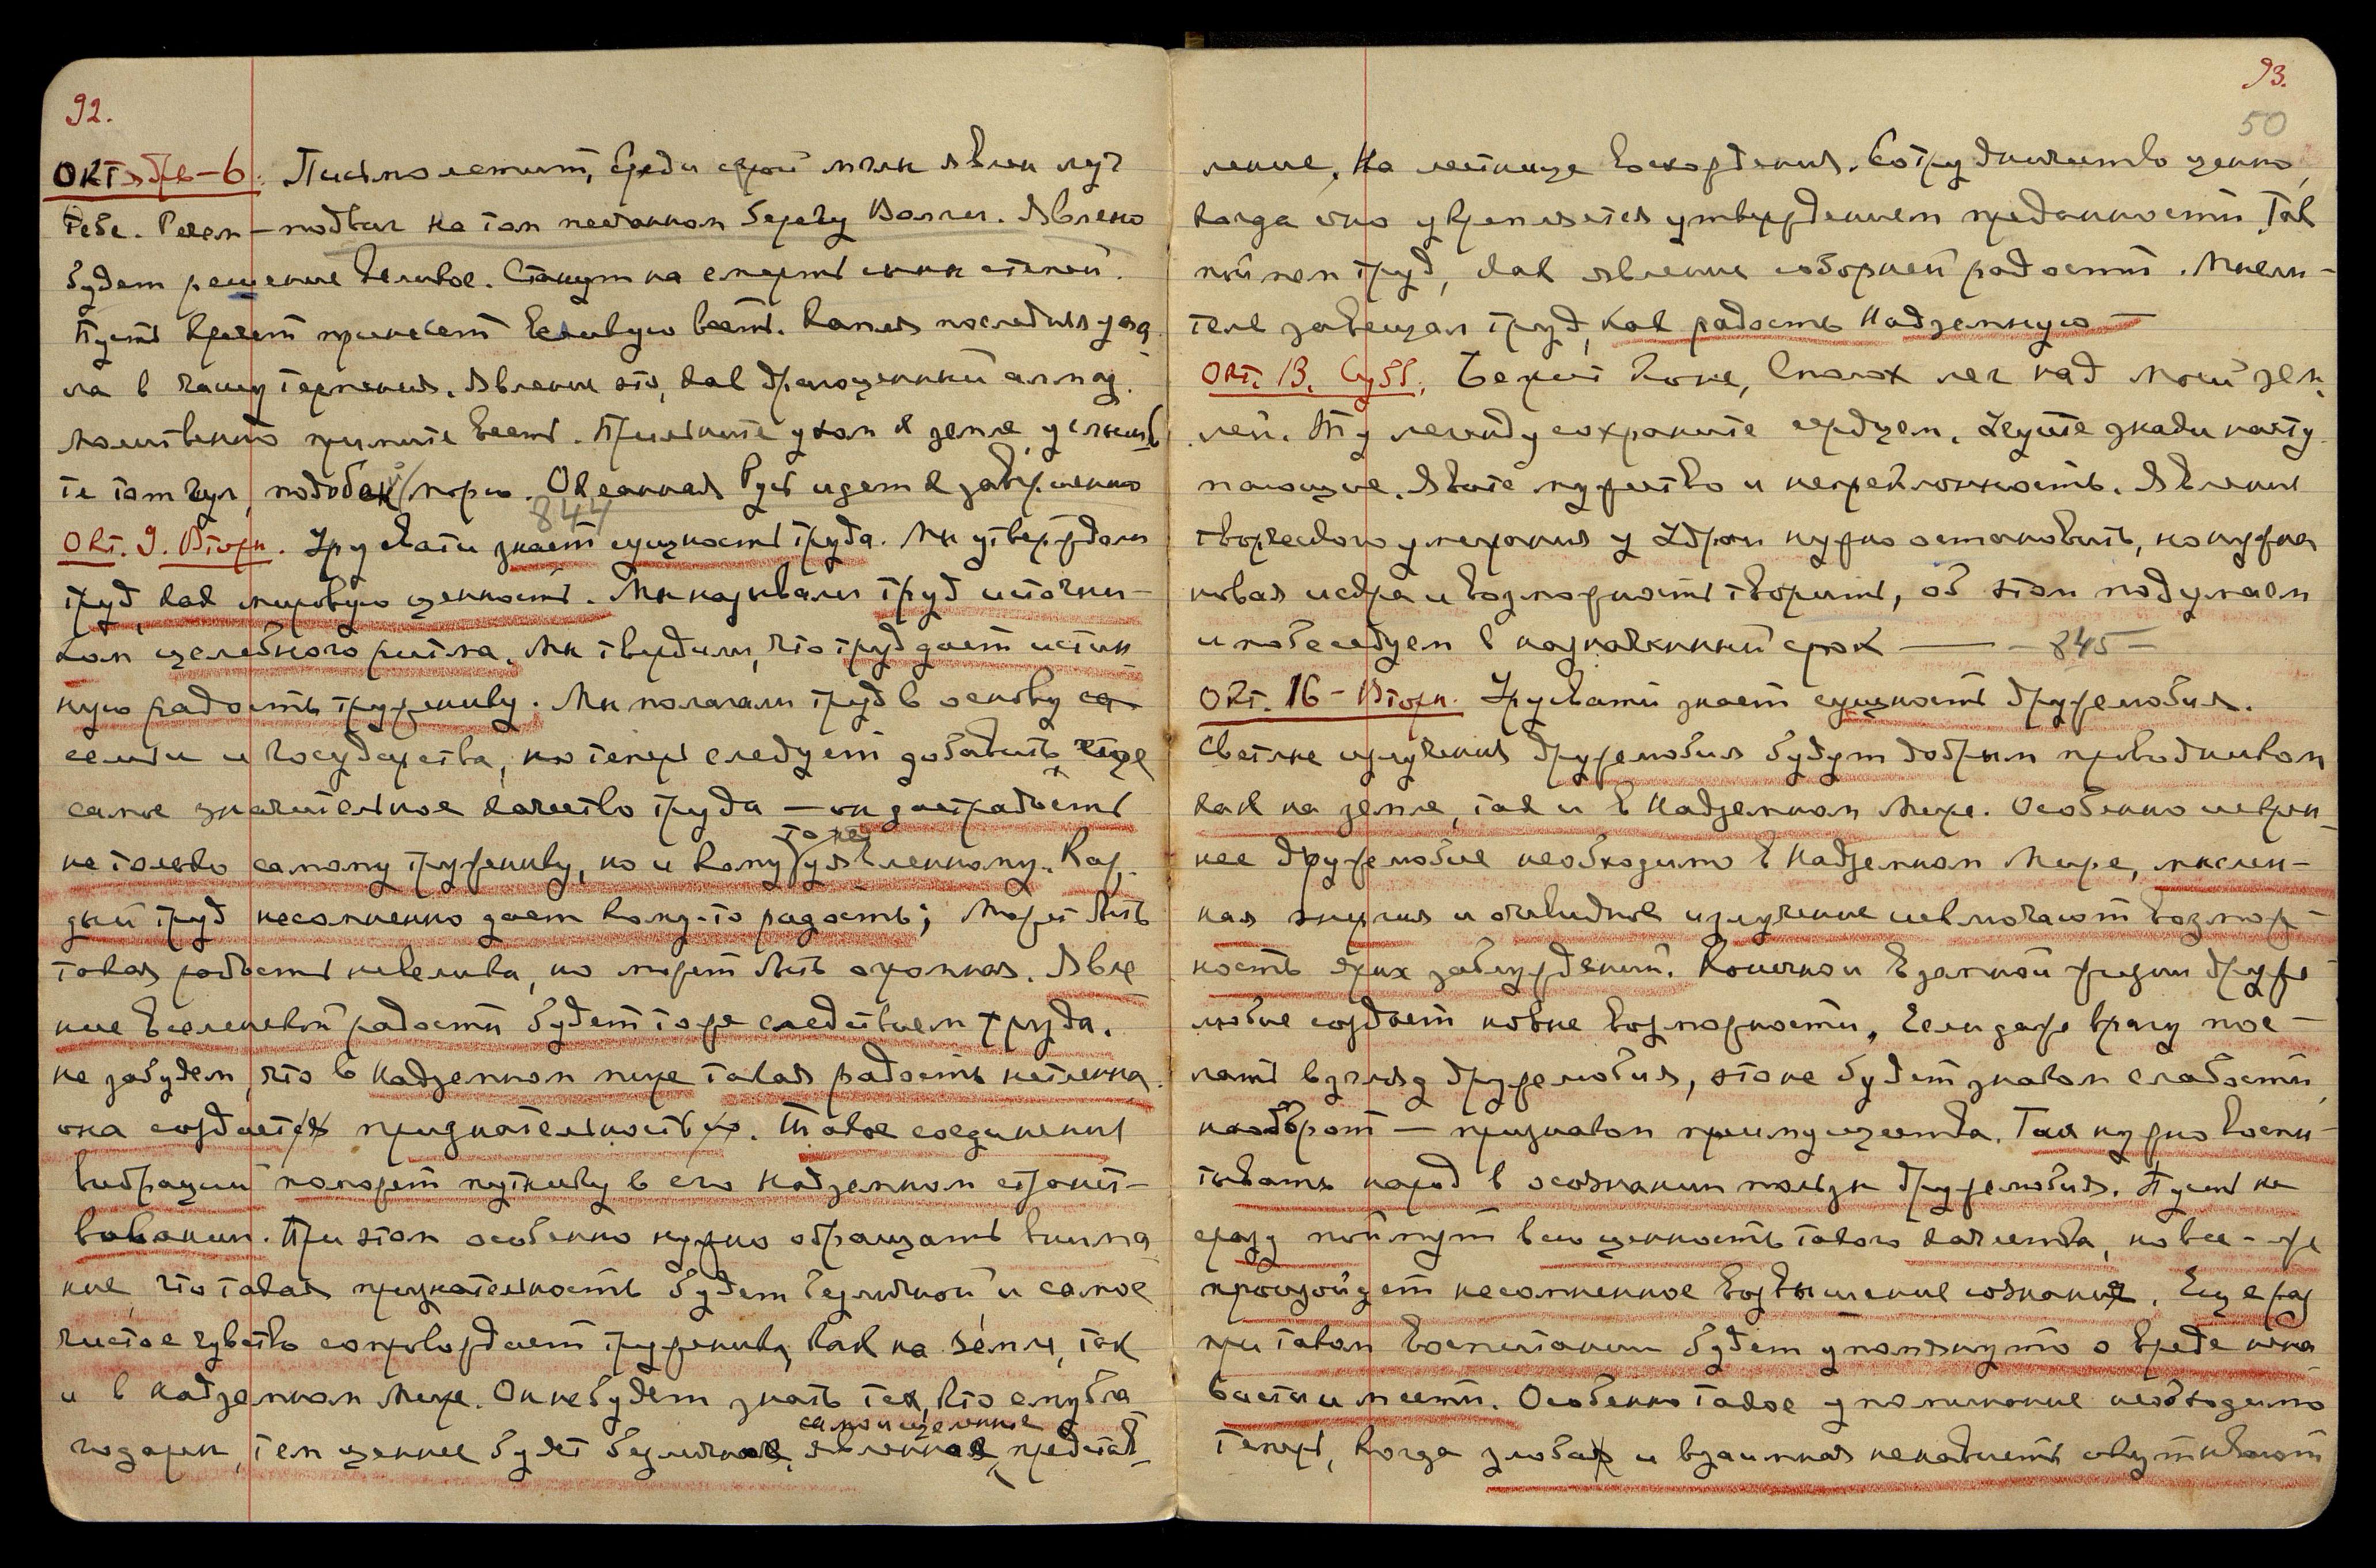 92.
Октябрь-6. Письмо летит, среди серой мглы явлен луч
тебе. Речем — подвиг на том песчаном берегу Волги. Явлено
будет решение великое. Станут на смерть сыны степей.
Пусть кречет принесет великую весть. Капля последняя упа
ла в чашу терпения. Явлении это, как драгоценный алмаз.
Молитвенно примите весть. Приложите ухом к земле, услыши
те там гул, подобен морю. Океанная Русь идет к завершению
844
Окт. 9. Вторн. Урусвати знает сущность труда. Мы утверждали
труд, как мировую ценность. Мы называли труд источни-
ком целебного ритма. Мы твердили, что труд дает истин
ную радость труженику. Мы полагали труд в основу
семьи и государства, но теперь следует добавить еще
самое значительное качество труда — он дает радость
не только самому труженику, но и кому-то уявленному. Каж
тоже
дый труд несомненно дает кому-то радость; Может быть
такая радость невелика, но может быть огромная. Явле
ние вселенской радости будет тоже следствием труда.
Не забудем, что в надземном мире такая радость нетленна.
она создается признательностью. Такое соединение
вибраций поможет путнику в его надземном странст-
вовании. При этом особенно нужно обращать внима
ние, что такая признательность будет безличной и самое
чистое чувство сопровождает труженика, как на земле, так
и в надземном Мире. Он не будет знать тех, кто ему бла
годарен, тем ценнее будет безличное, явленное предстов
самоисцеление
93.
50
ление, на лестнице восхождения. Сотрудничество ценно,
когда оно укрепляется утверждением преданности. Так
поймем труд, как явление соборной радости. Мысли-
тель завещал труд, как радость Надземную —
Окт. 13. Субб. Бежит конь, сполох лег над Моей зем
лей. Ту легенду сохраните сердцем. Чуйте знаки насту
пающие. Явите мужество и непреклонность. Явления
творческого умерания у ядра нужно остановить, но нужна
новая искра и возможность творить, об этом подумаем
и побеседуем в назначенный срок — 845 —
Окт. 16 - Вторн. Урусвати знает сущность дружелюбия.
Светлые излучения дружелюбия будут добрым проводником
как на земле, так и в надземном Мире. Особенно искрен
нее дружелюбие необходимо в надземном Мире, мыслен-
ная энергия и очевидное излучение исключают возмож-
ность этих заблуждений. Конечно и в земной жизни друже
любие создает новые возможности. Если даже врагу пос-
лать взгляд дружелюбия, это не будет знаком слабости,
наоборот — признаком преимущества. Так нужно воспи-
тывать народ в осознании пользы дружелюбия. Пусть не
сразу поймут всю ценность такого качества, но все-же
произойдет несомненное возвышение сознания. Еще раз
при таком воспитании будет упомянуто о вреде нена
висти и мести. Особенно такое упоминание необходимо
теперь, когда злоба и взаимная ненависть окутывают